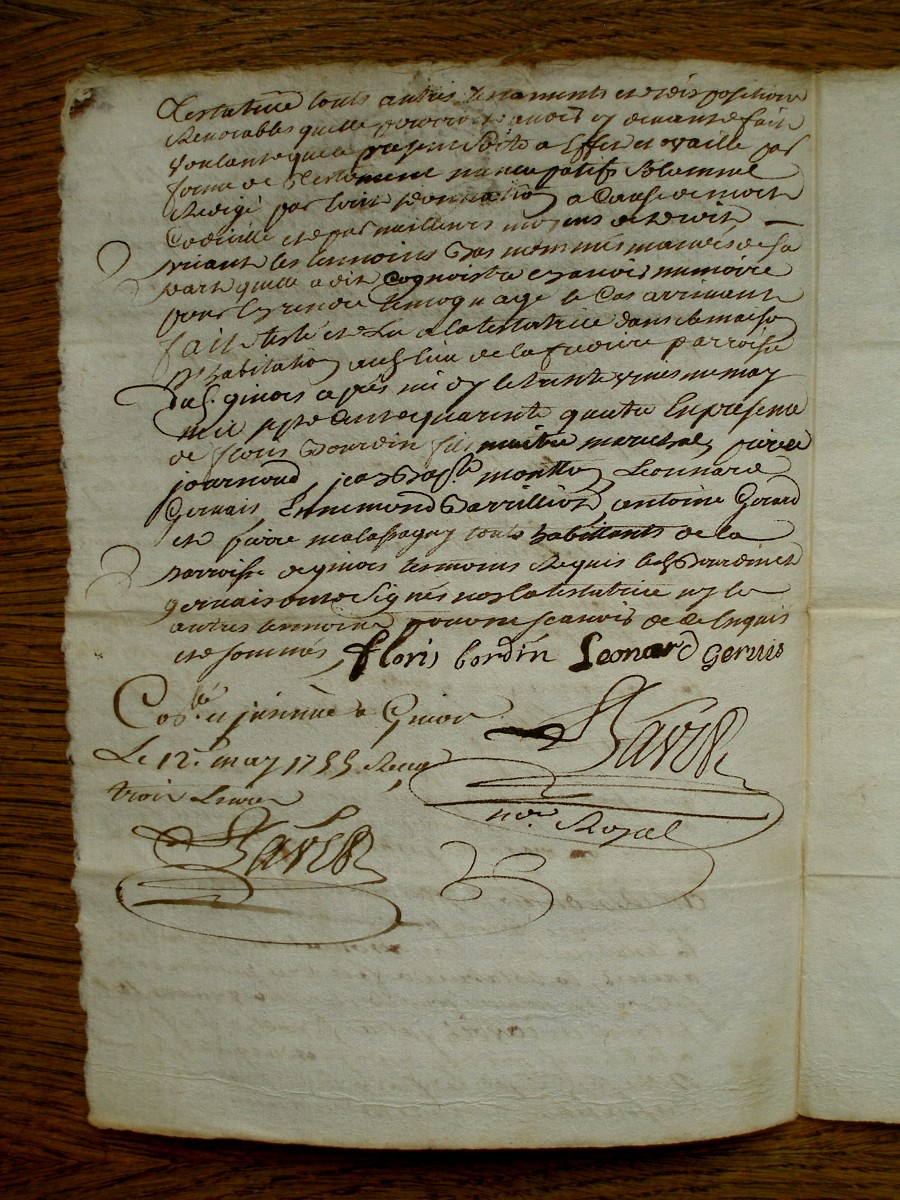 Testatrice touts autres testaments et dispositions
Revocables quelle pourroit avoir cy devant fait
voulant que le present sorte a Effet et vaille par
forme de testement nuncupatif solemnel
Redigé par Ecrit donnation a Cause de mort
Codicille et par meilleurs moyens de droit
priant les temoins bas nommés mandés de sa
part quelle a dit Cognoistre en avoir mémoire
pour en rendre temognage le Cas arrivant
fait leu a la testatrice dans la maison
d'habitation aud. lieu de la parroisse
dud. givors apres midy le trente may
mil sept cent quarente quatre En presence
de floris Bourdin fils maitre marechal, pierre
journoud, jean Bapte. Leonnard
Gervais, Ennemond antoine Gerard
et pierre touts habittants de la
parroisse de givors temoins Requis lesd. Bourdin et
gervais ont signés non la testatrice ny les
autres temoins pour ne scavoir de ce Enquis
et sommes, floris bordin Leonard gervais
Coslé. et a Givors
Le 12e. may 1755 Recu
trois Livres
nore. Royal